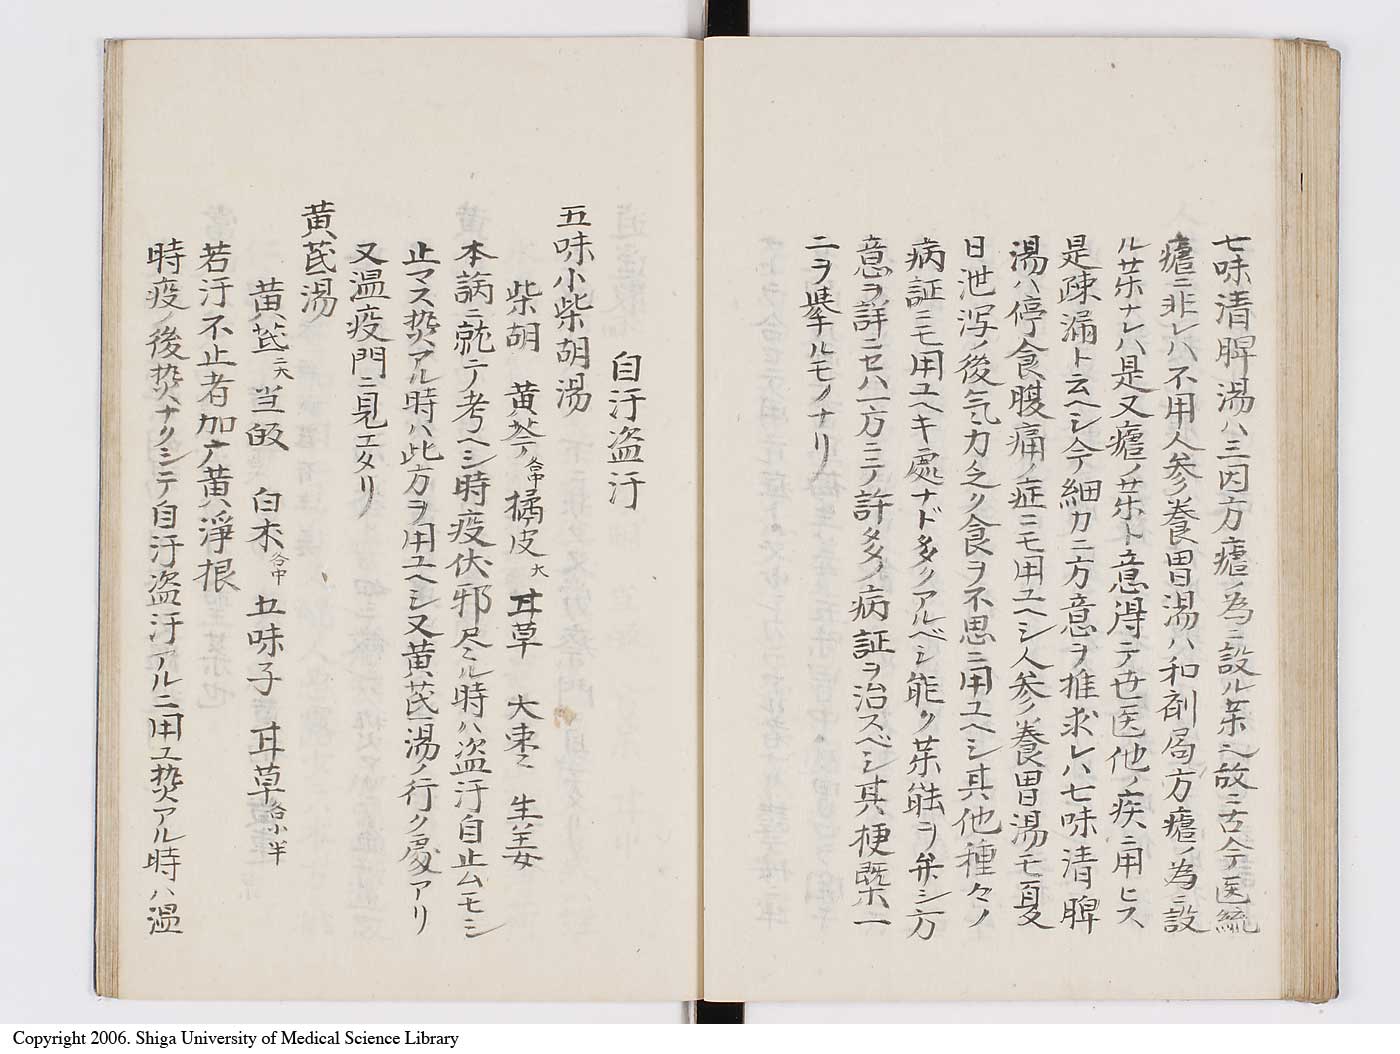 七味清脾湯ハ三因方瘧ノ為ニ設ル薬也故ニ古今医統
瘧ニ非レハ不用人参養胃湯ハ和剤局方瘧ノ為ニ設
ル薬ナレハ是又瘧ノ薬ト意得テ世医他ノ疾ニ用ヒス
是疎漏ト云ヘシ今細カニ方意ヲ推求レハ七味清脾
湯ハ停食腹痛ノ症ニモ用ユヘシ人参養胃湯モ夏
日泄泻ノ後気力乏ク食ヲ不思ニ用ユヘシ其他種々ノ
病証ニモ用ユヘキ處ナド多クアルベシ能ク薬能ヲ弁シ方
意ヲ詳ニセハ一方ニテ許多ノ病証ヲ治スベシ其梗槩一
二ヲ挙ルモノナリ
自汗盗汗
五味小柴胡湯
柴胡 黄芩各中 橘皮大 甘草 大棗 生姜
本論ニ就テ考ヘシ時疫伏邪尽ル時ハ盗汗自止ムモシ
止マス熱アル時ハ此方ヲ用ユヘシ又黄芪湯ノ行ク處アリ
又温疫門ニ見エタリ
黄芪湯
黄芪二大 当皈 白朮各中 五味子 甘草各小半
若汗不止者加麻黄淨根
時疫ノ後熱ナクシテ自汗盗汗アルニ用ユ熱アル時ハ温
Copyright 2006. Shiga University of Medical Science Library